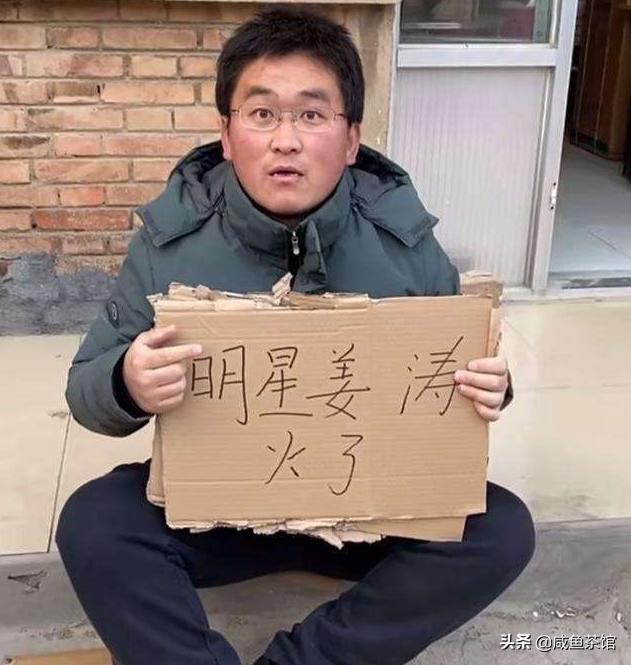 明星姜涛
火了
头条 @咸鱼茶馆